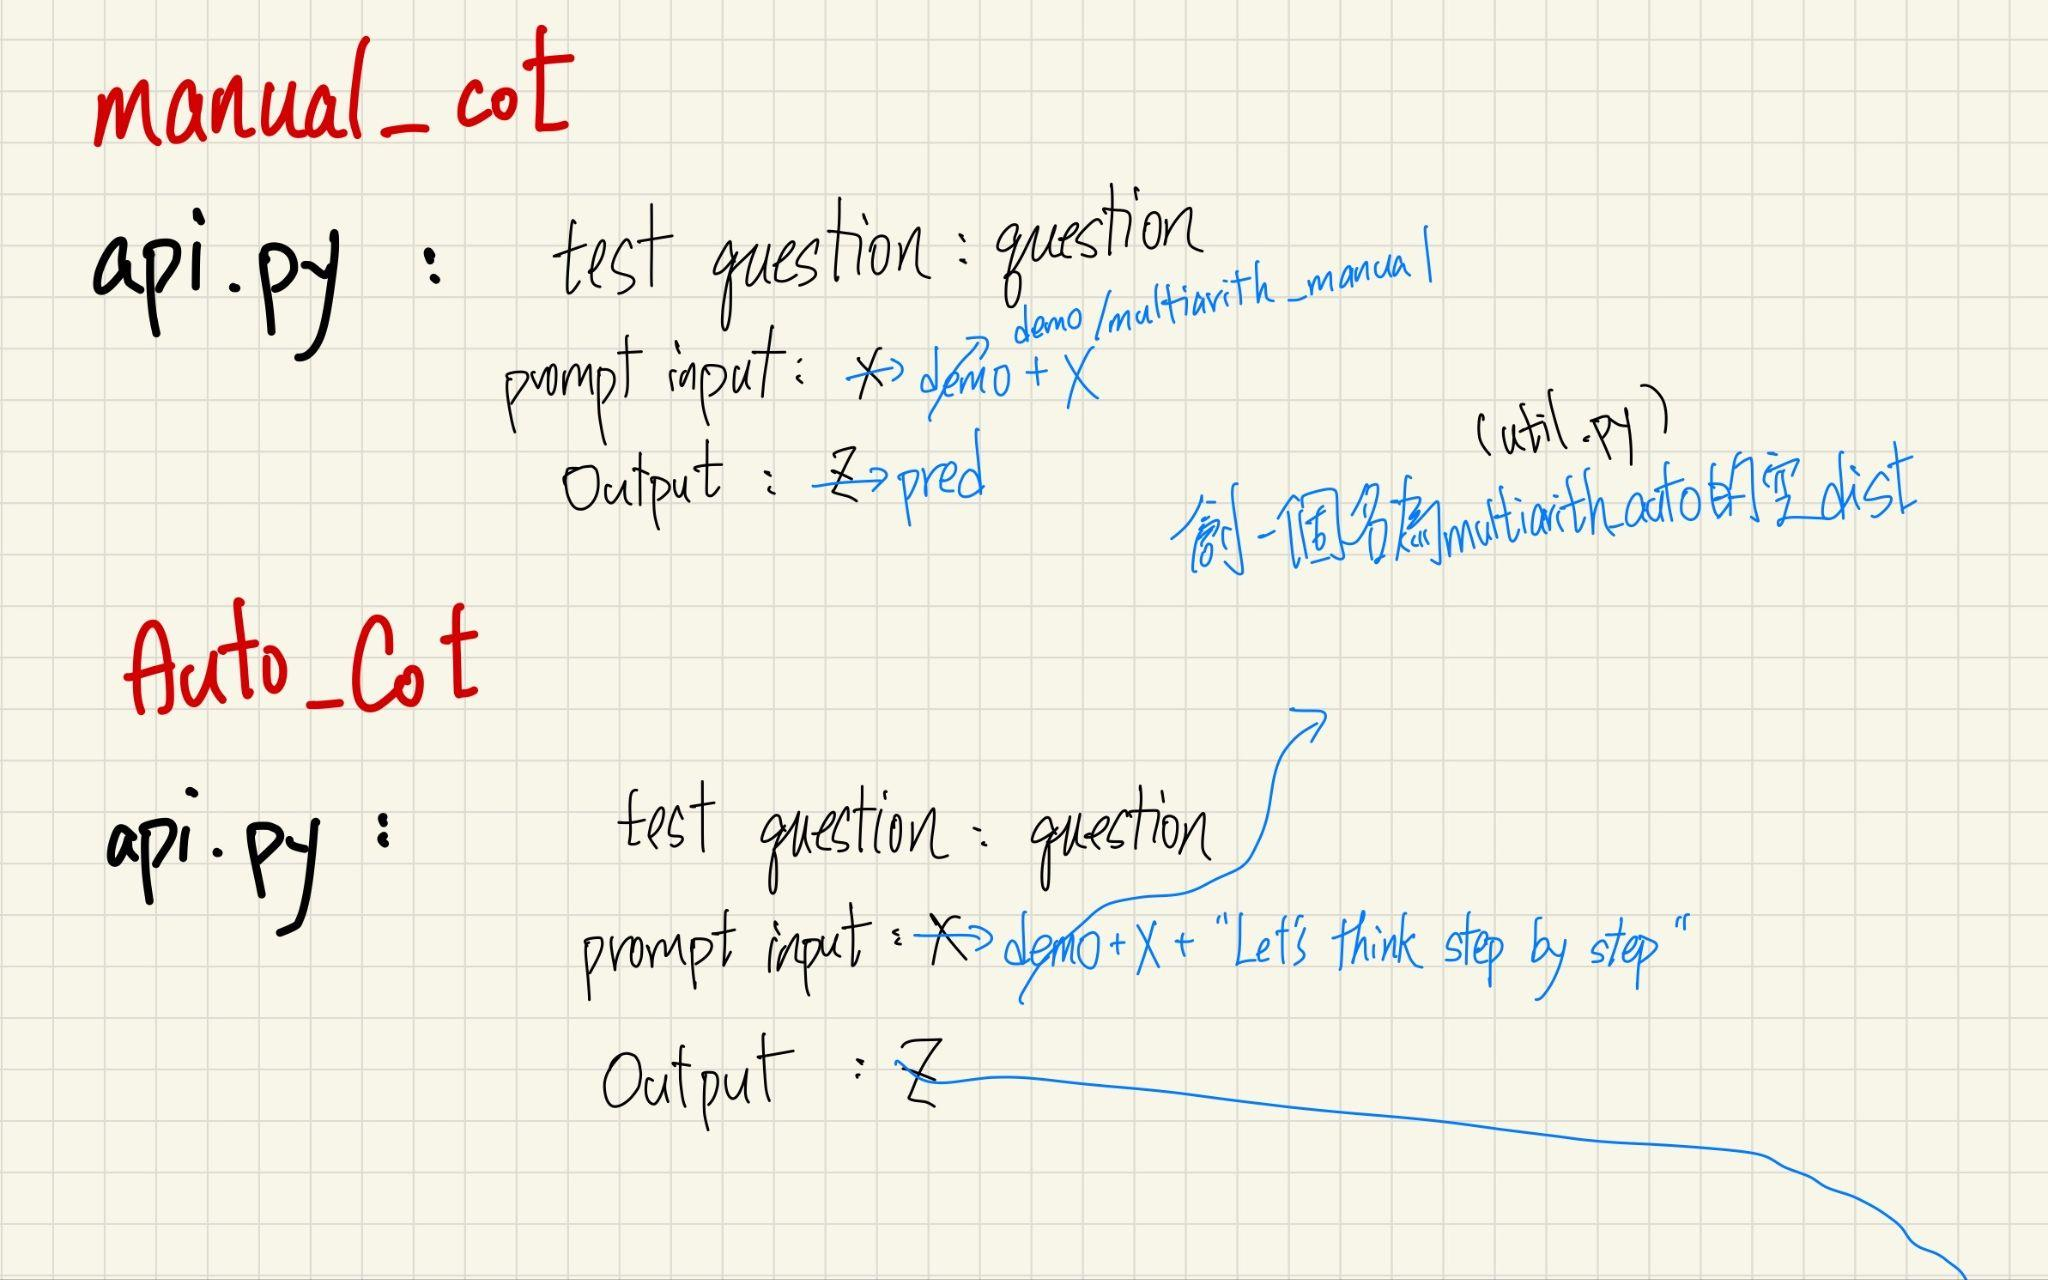 manual_cot
api.py : test question : question
demo/multiarith_manual
prompt input : X → demo + X
(util.py)
Output : Z → pred
創一個名為multiarith_auto的空_dist
Auto_Cot
api.py : test question : question
prompt input : X → demo + X + "Let's think step by step"
Output : Z